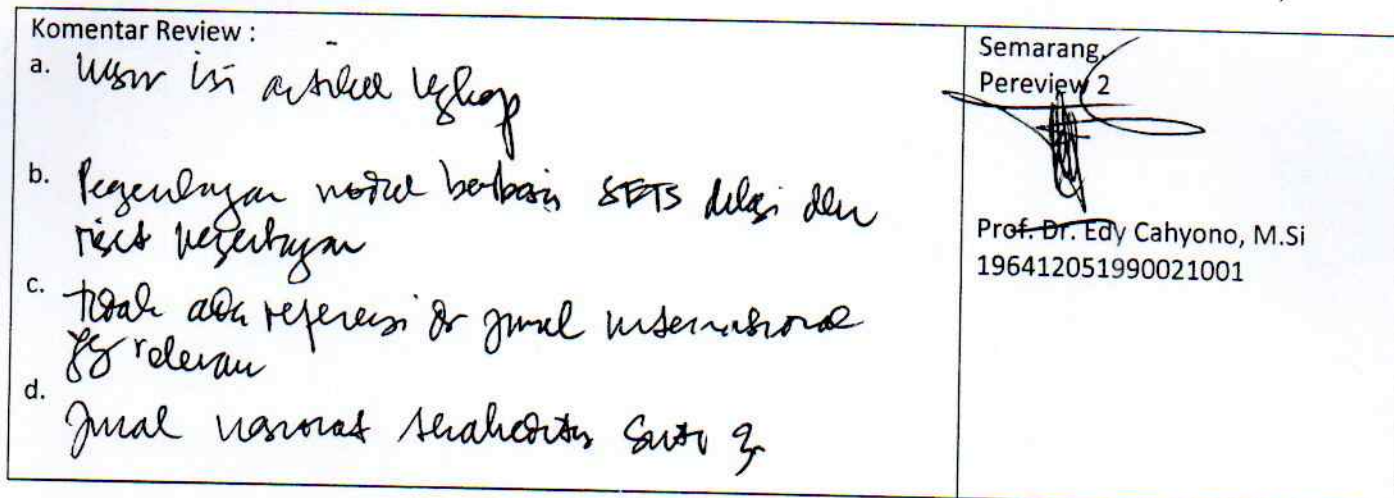 Komentar Review :
a. Unsur isi artikel lengkap
b. Pengembangan modul berbasis SETS dikaji dlm
riset pengembangan
c. tidak ada referensi dr jurnal internasional
yg relevan
d. Jurnal nasional terakreditasi Sinta 3
Semarang,
Pereview 2
Prof. Dr. Edy Cahyono, M.Si
196412051990021001